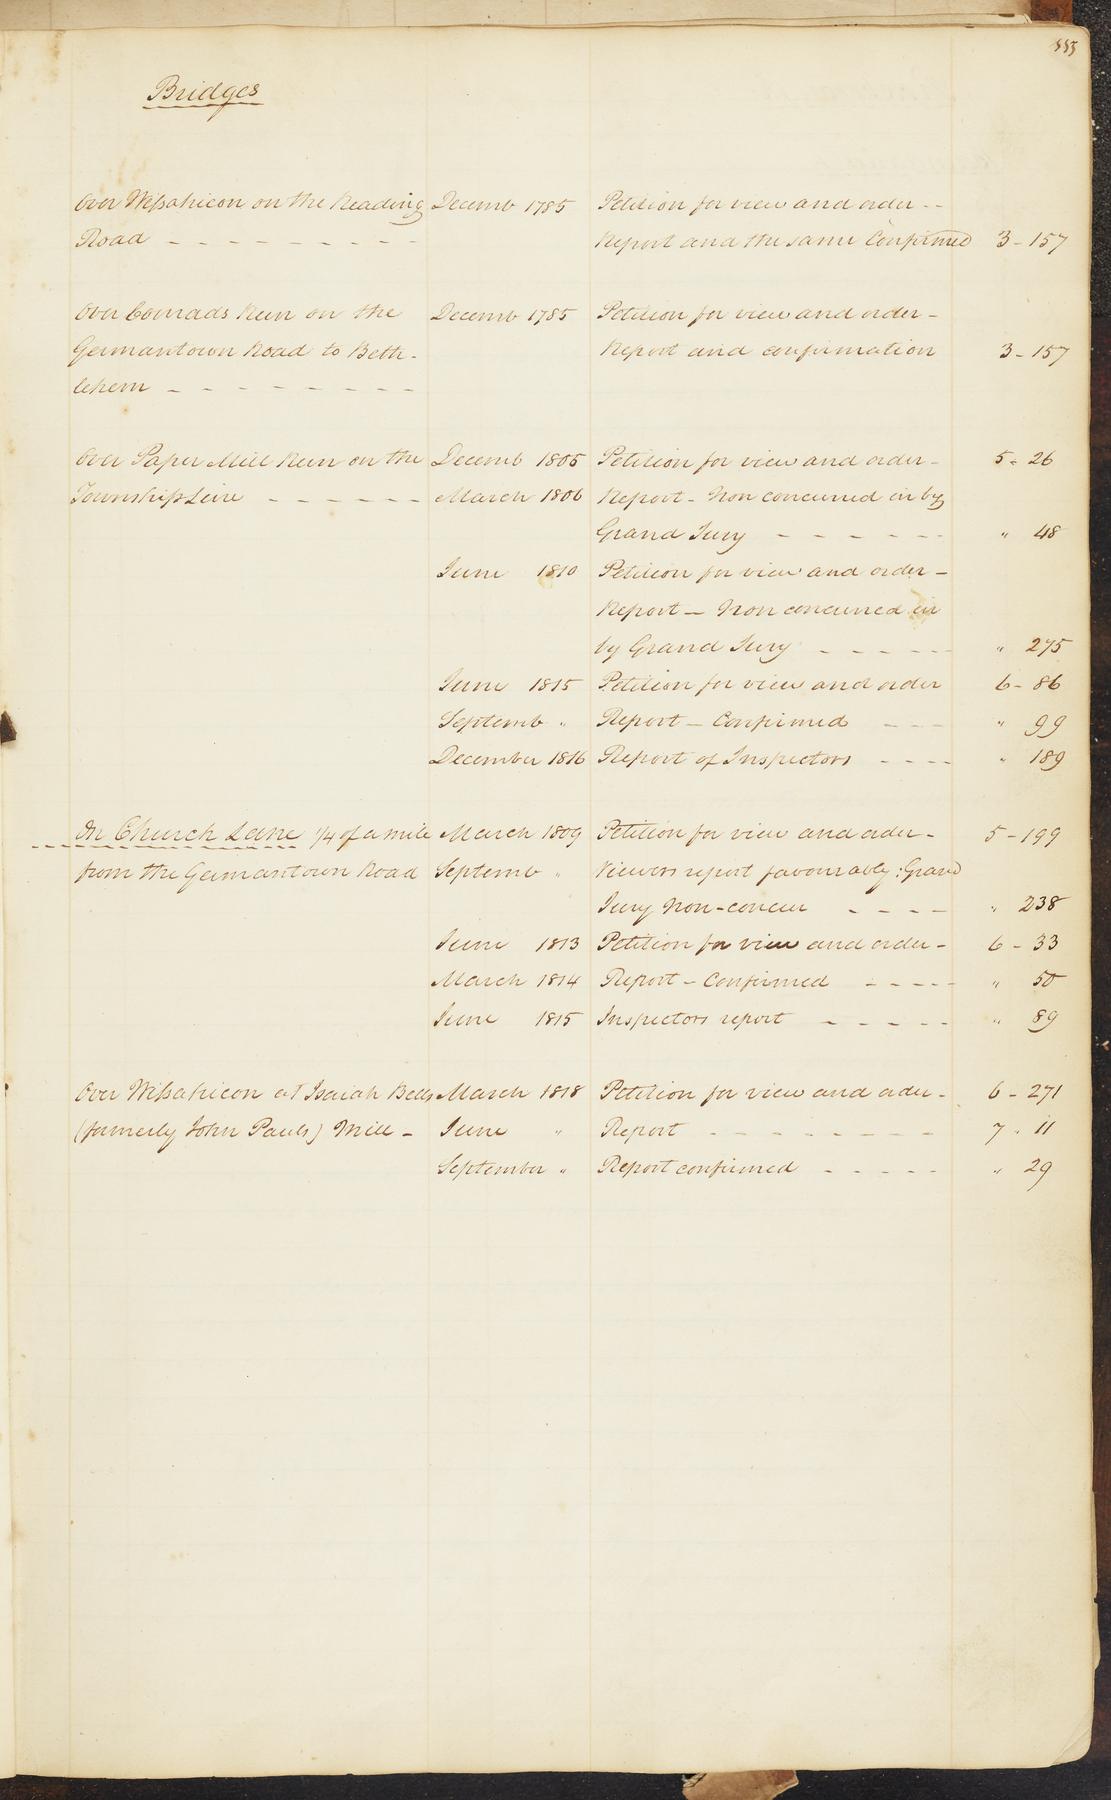 333
Bridges
Over Wissahicon on the Reading Decemb 1785 Petition for view and order --
Road - - - - - - - - - Report and the same Confirmed 3 - 157
Over Conrads Run on the Decemb 1785 Petition for view and order -
Germantown Road to Beth- Report and confirmation 3 - 157
lehem - - - - - - - - -
Over Paper Mill Run on the Decemb 1805 Petition for view and order - 5 - 26
Township Line - - - - - - March 1806 Report - Non concurred in by
Grand Jury - - - - - - " 48
June 1810 Petition for view and order -
Report - Non concurred in
by Grand Jury - - - - - " 275
June 1815 Petition for view and order 6 - 86
Septemb " Report - Confirmed - - - " 99
December 1816 Report of Inspectors - - - - " 189
On Church Lane 1/4 of a mile March 1809 Petition for view and order - 5 - 199
from the Germantown Road Septemb " Viewers report favourably : Grand
Jury Non-concur - - - - " 238
June 1813 Petition for view and order - 6 - 33
March 1814 Report - Confirmed - - - - - " 50
June 1815 Inspectors report - - - - - " 89
Over Wissahicon at Isaiah Bells March 1818 Petition for view and order - 6 - 271
(formerly John Pauls) Mill - June " Report - - - - - - - - - 7 - 11
September " Report confirmed - - - - - " 29